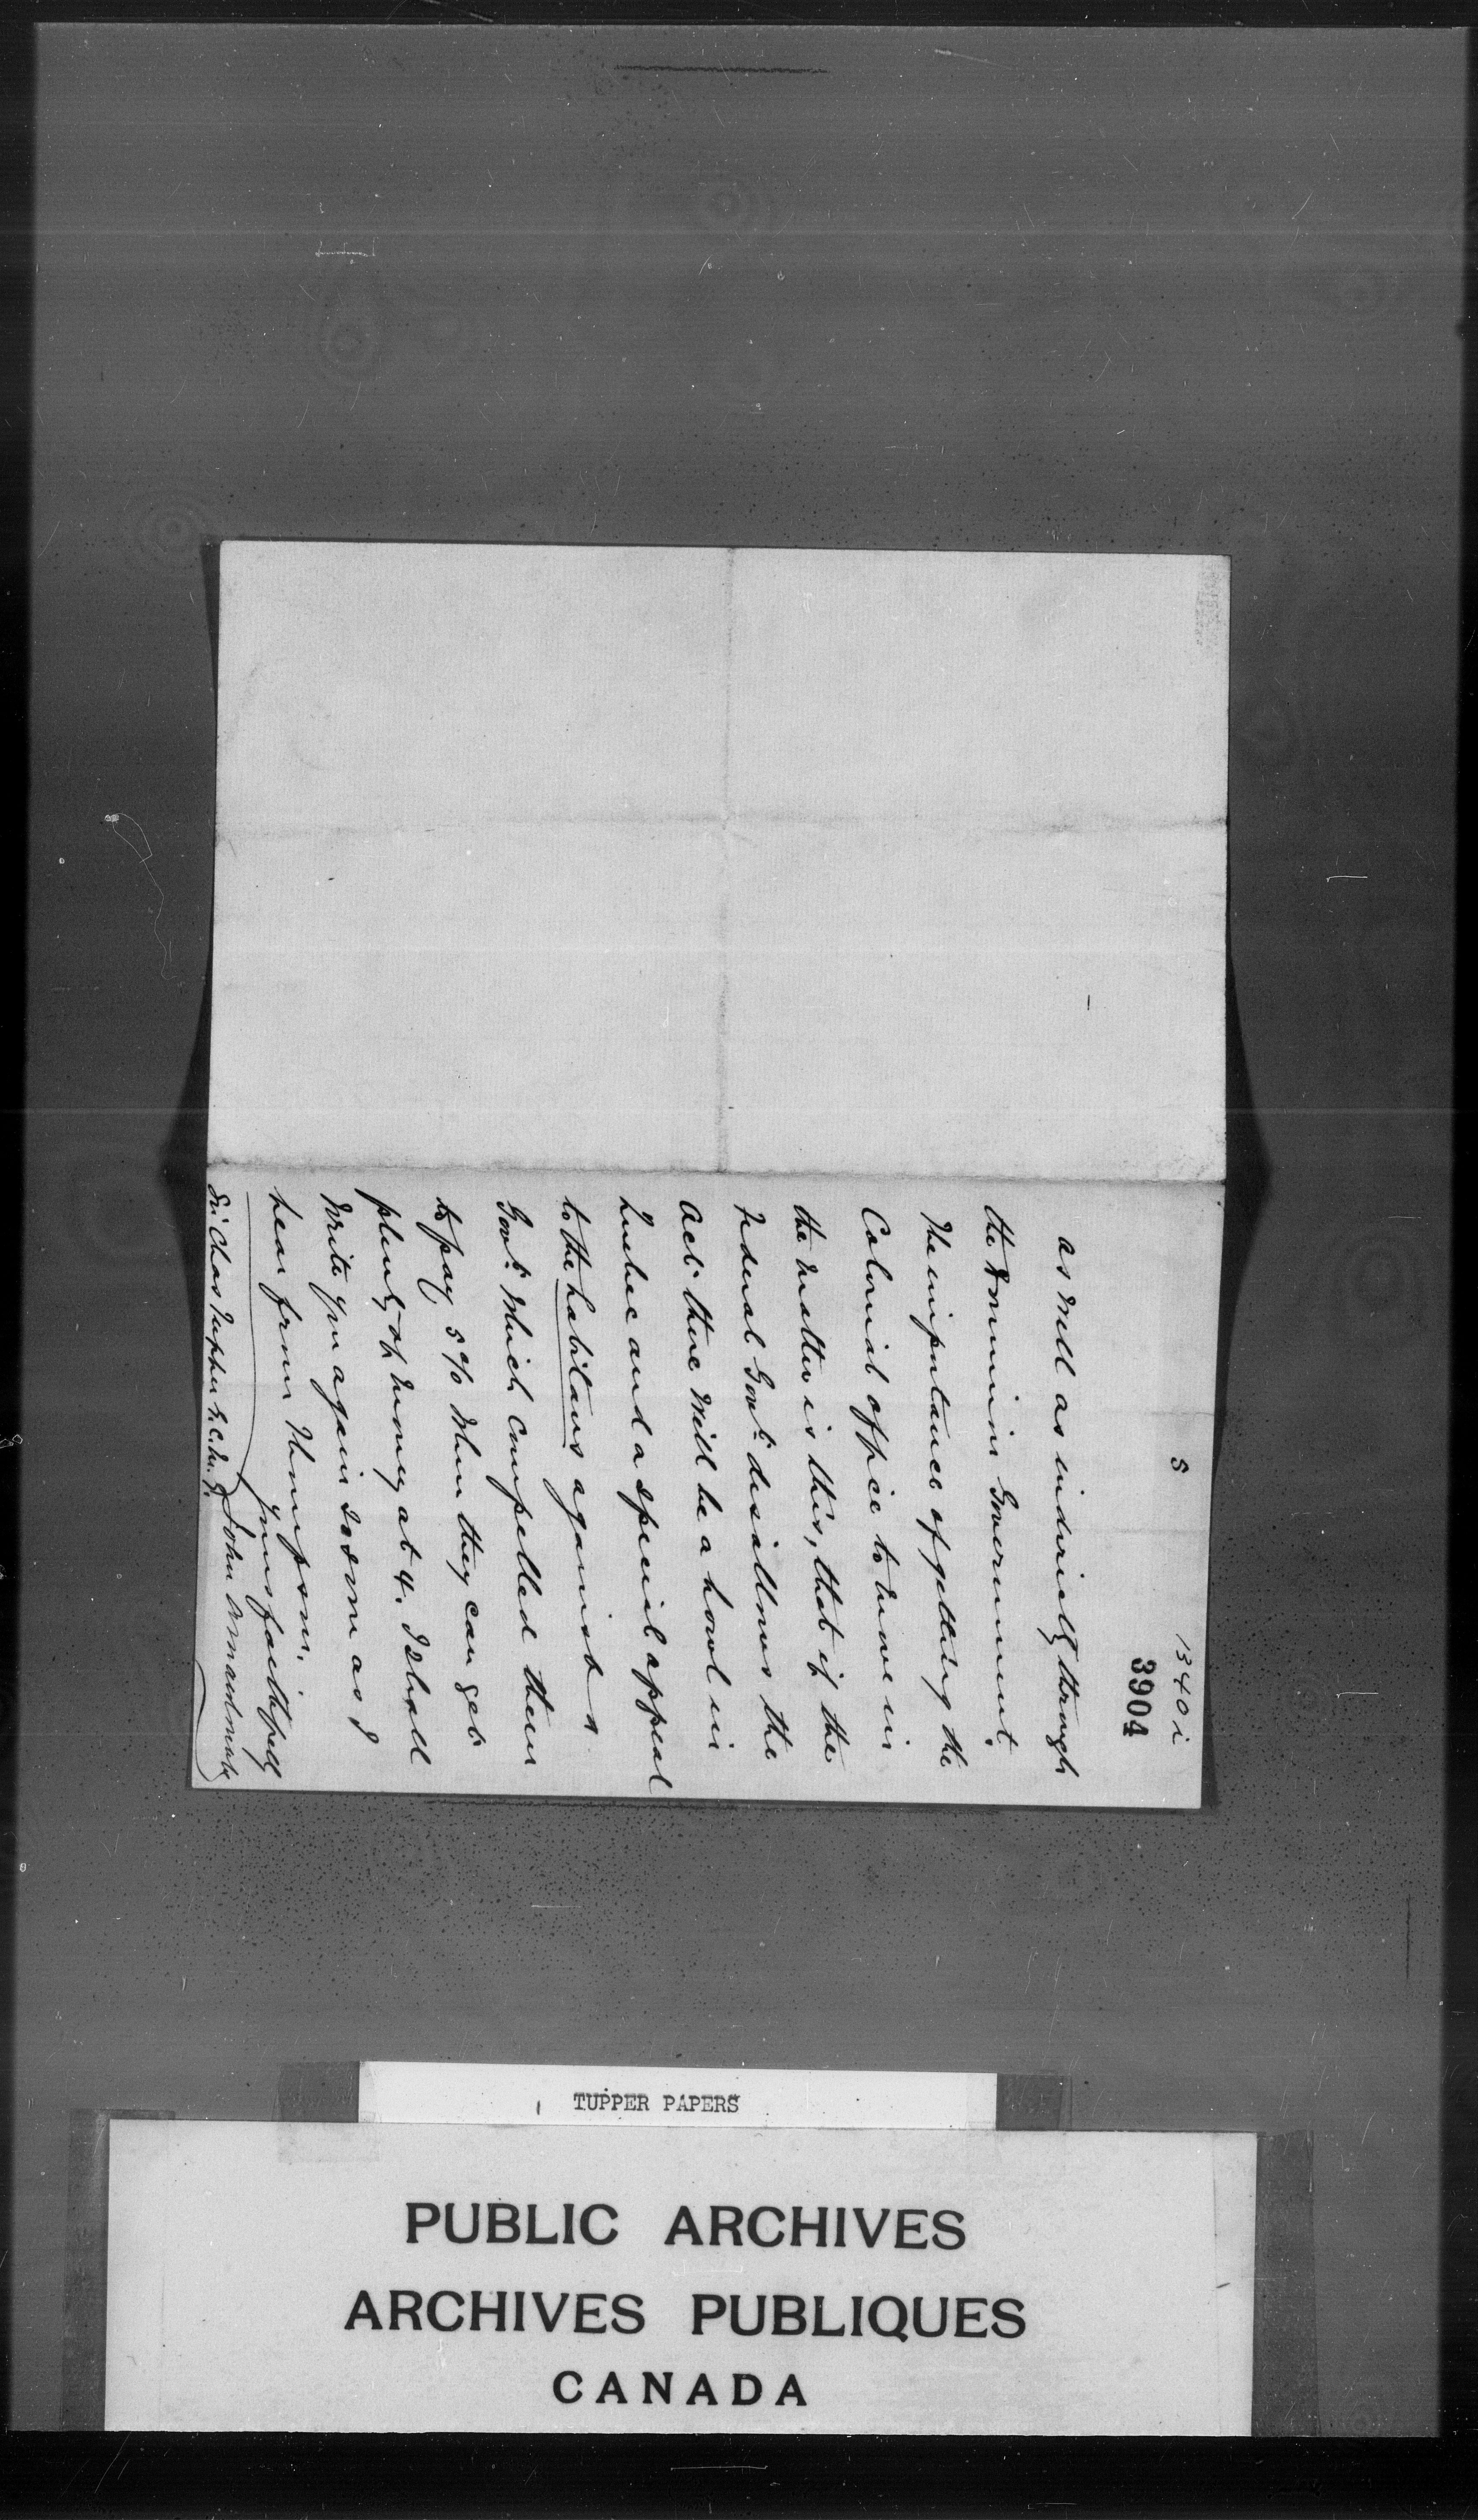 5
1340 i
3904
as well as indirectly through
the Dominion Government.
The importance of getting the
Colonial office to move in
the matter is this, that if the
Federal Govt. disallows the
act there will be a howl in
Quebec and a special appeal
to the habitans against a
Govt. which compelled them
to pay 5% when they can get
plenty of money at 4. I shall
write you again so soon as I
hear from Thompson.
Yours faithfully
John
Sir Chas Tupper G.C.M.G.
TUPPER PAPERS
PUBLIC ARCHIVES
ARCHIVES PUBLIQUES
CANADA